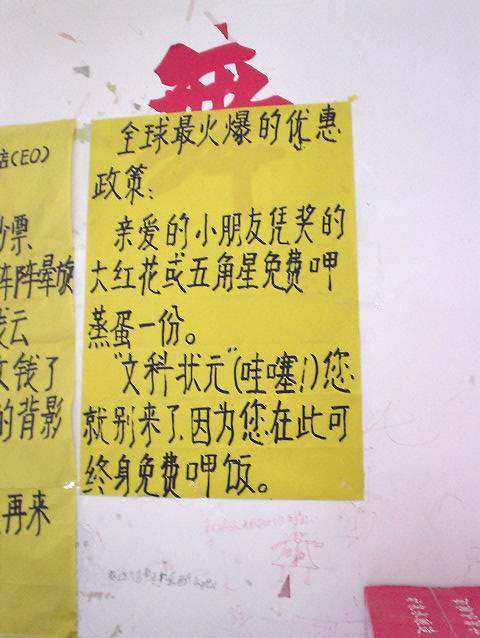 店(CEO)
钞票
阵阵晕旋
钱云
文钱了
的背影
再来
全球最火爆的优惠
政策:
亲爱的小朋友凭奖的
大红花或五角星免费呷
蒸蛋一份。
"文科状元"(哇噻!)您
就别来了.因为您在此可
终身免费呷饭。